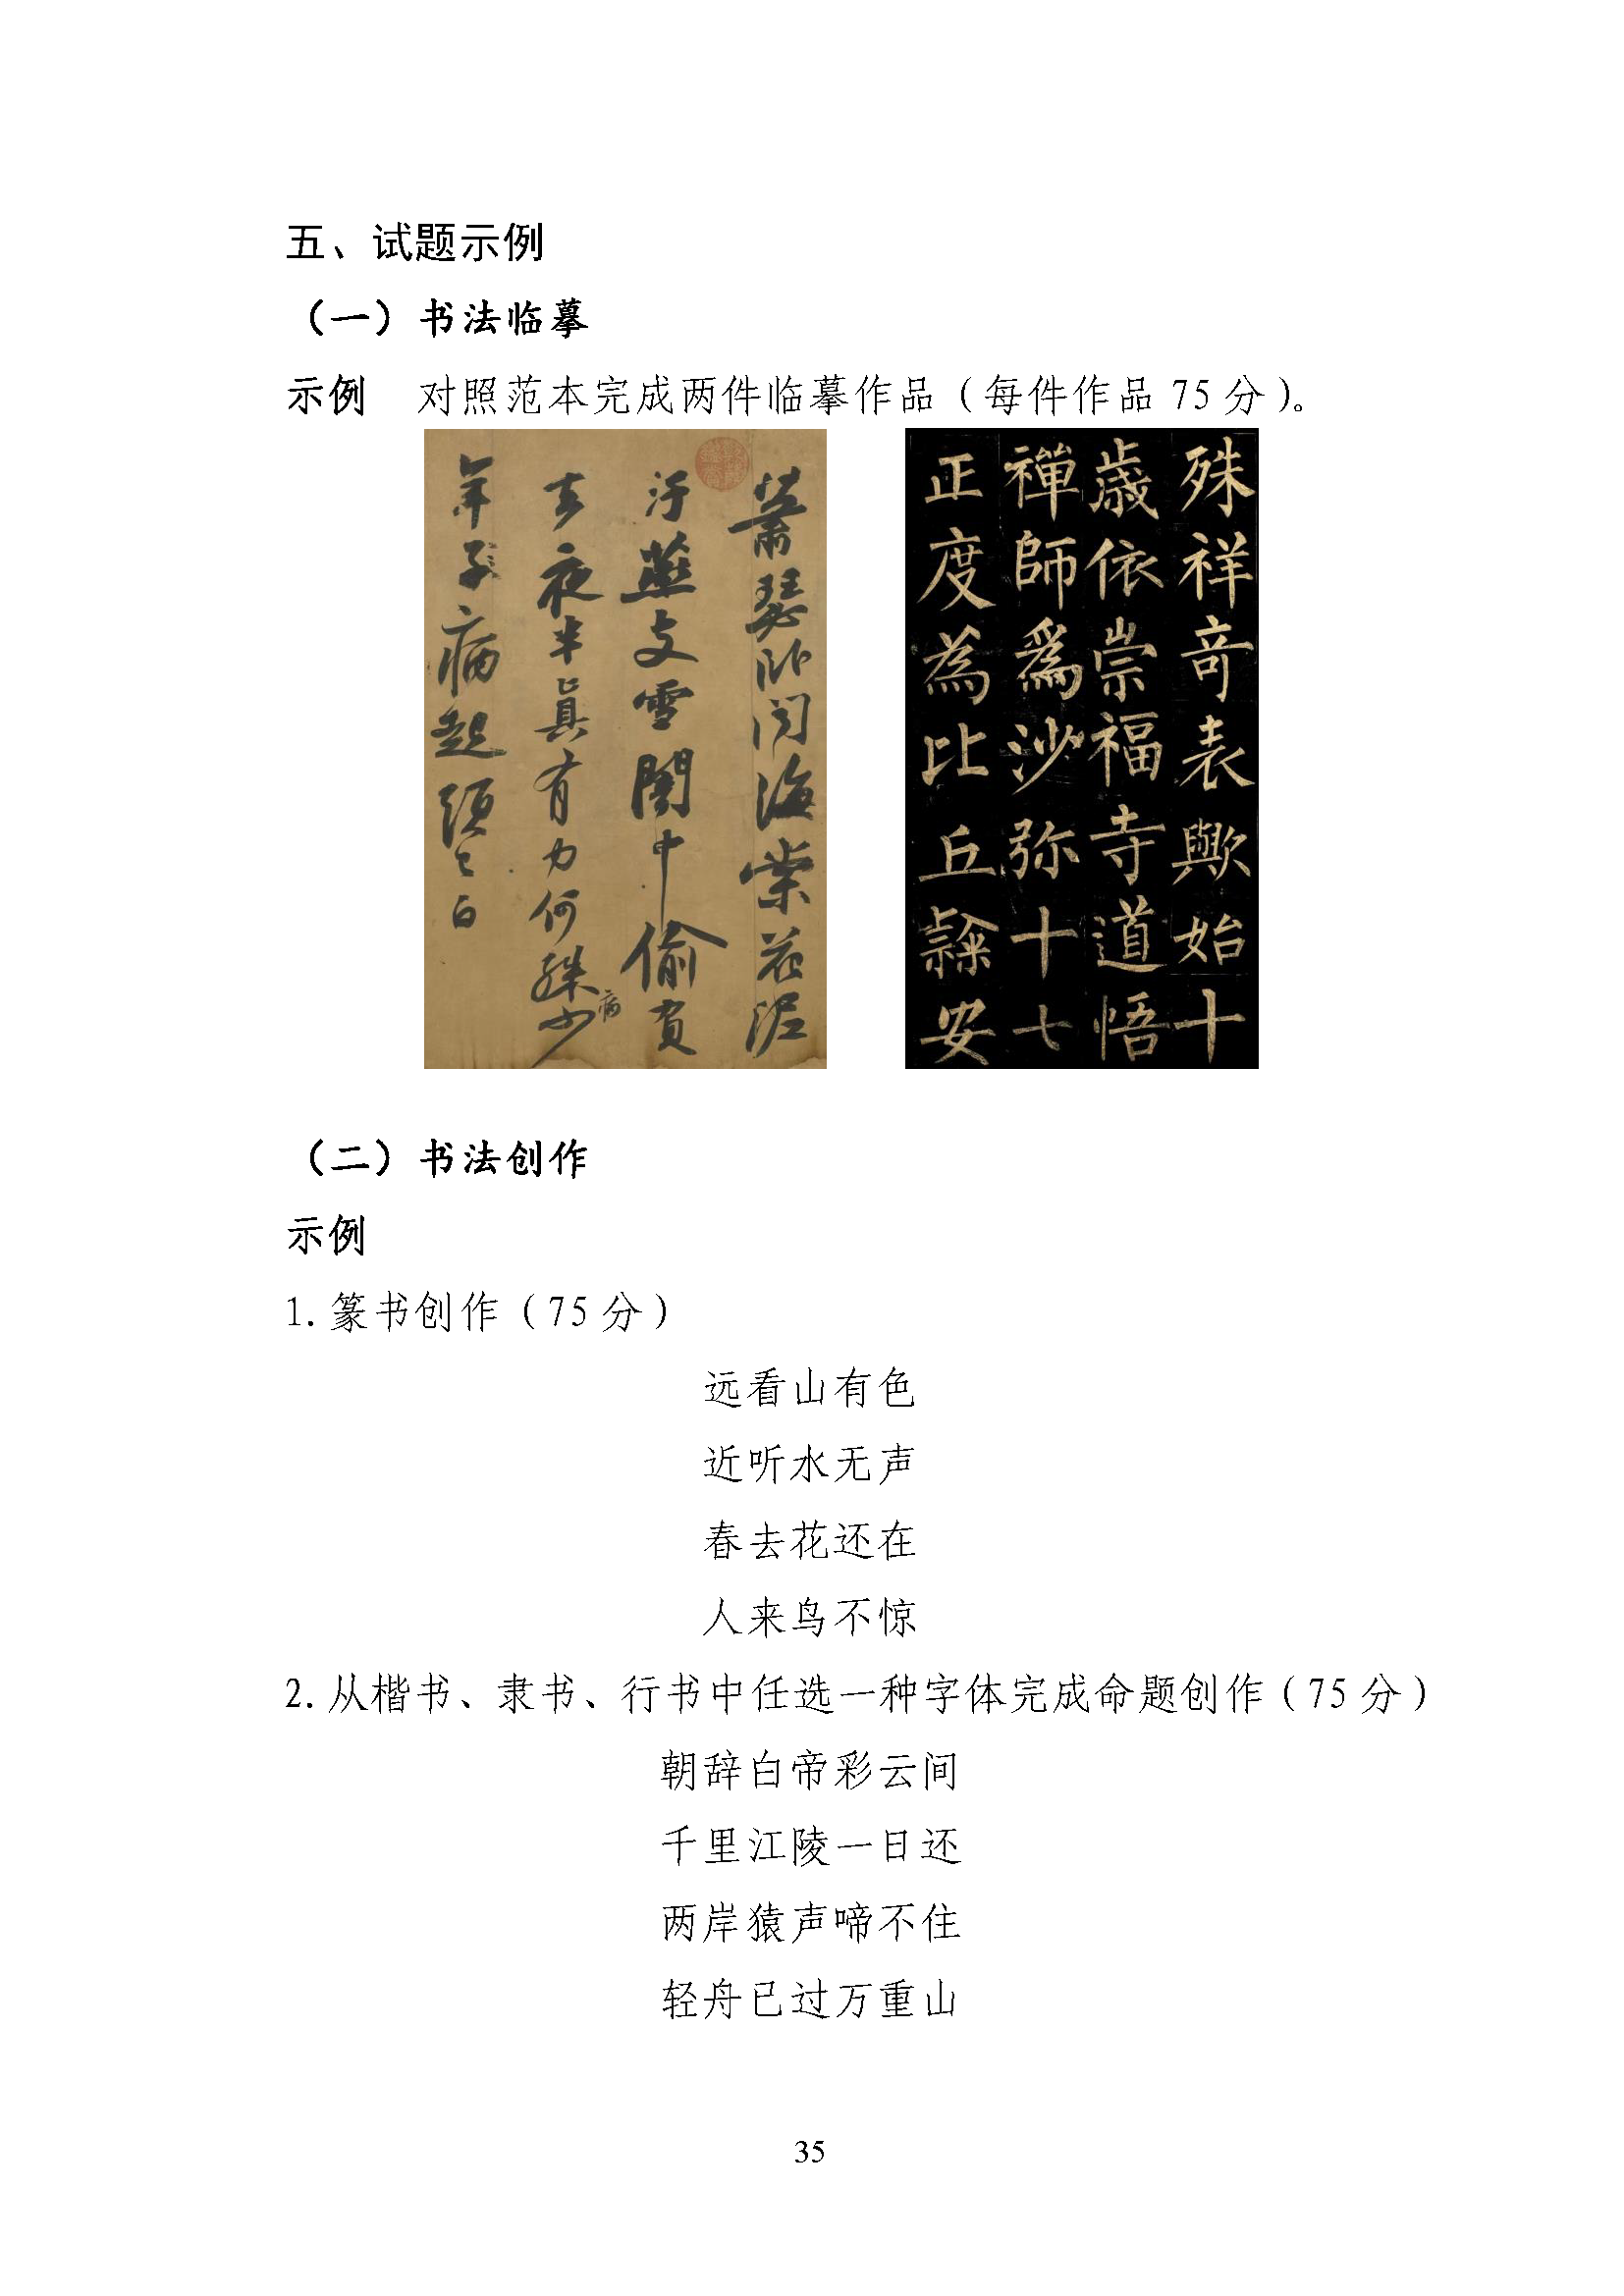 五、试题示例
（一）书法临摹
示例 对照范本完成两件临摹作品（每件作品 75 分）。
蕭瑟卧聞海棠花泥
汙燕支雪闇中偷負
去夜半真有力何殊少
病
年子病起頭已白
殊祥奇表歟始十
歲依崇福寺道悟
禪師爲沙弥十七
正度為比丘隸安
（二）书法创作
示例
1. 篆书创作（75 分）
远看山有色
近听水无声
春去花还在
人来鸟不惊
2. 从楷书、隶书、行书中任选一种字体完成命题创作（75 分）
朝辞白帝彩云间
千里江陵一日还
两岸猿声啼不住
轻舟已过万重山
35